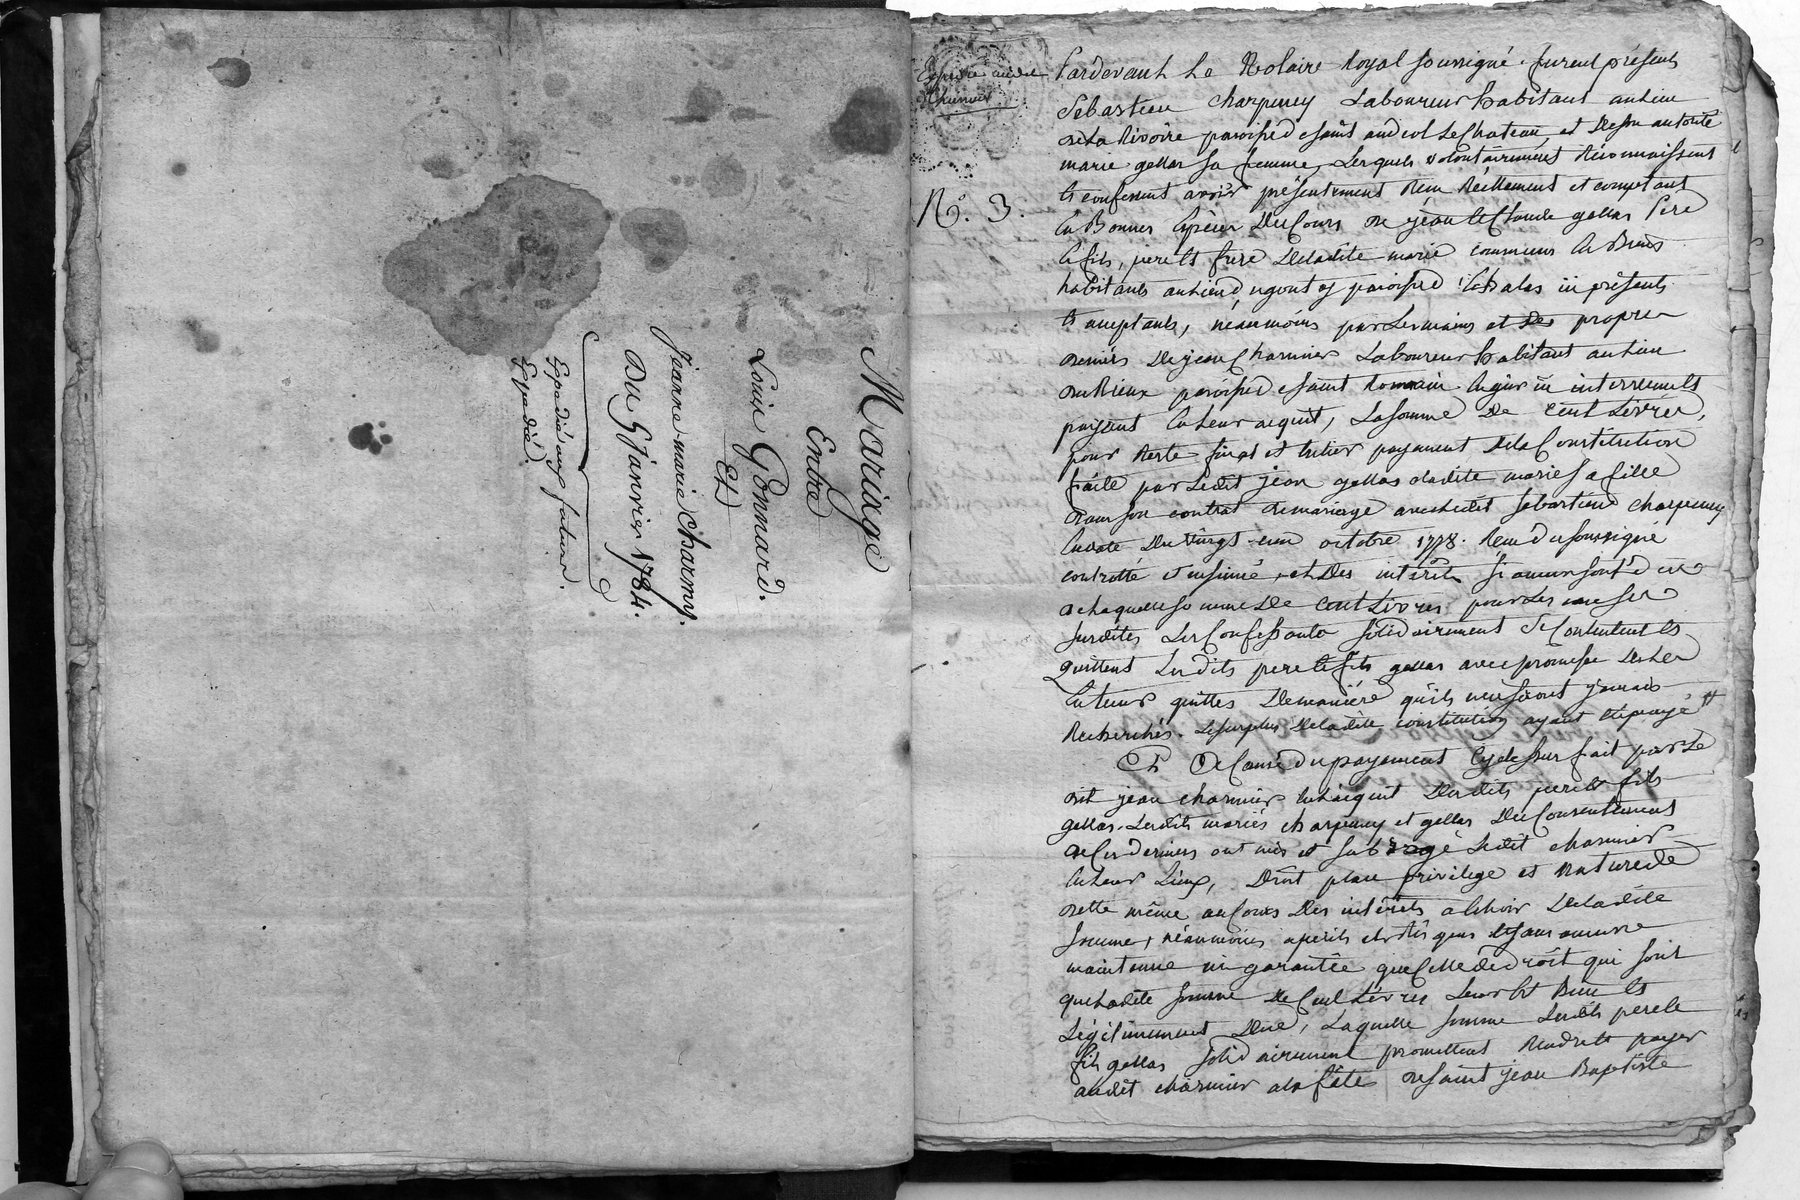 Mariage
Entre
Louis Gonnard.
Et
Jeanne marie Charmy.
Du 5 Janvier 1784.
Expedié aux futurs.
Expedié.
Expedié audit
Charmier
N.º 3.
Pardevant Le Notaire Royal soussigné. furent présents
Sebastien charpeney Laboureur habitant au lieu
de La Rivoire paroisse de saint andeol Le Chateau, et de son autorité
marie gellas sa femme, Lesquels volontairement Reconnaissent
et confessent avoir présentement Recu Réellement et comptant
En Bonnes Espèces Du Cours de jean et Claude gellas Pere
et fils, pere et frere De ladite marie communs En Biens
habitants au lieu dugoutoy paroisse Echalas ici présents
et acceptants, néanmoins par Les mains et des propres
deniers De jean Charmier Laboureur habitant au lieu
du Rieux paroisse de saint Romain En gier ici intervenant et
payant En Leur acquit, La somme De Cent Livres,
pour Reste final et Entier payement De la Constitution
faite par Ledit jean gellas a ladite marie sa fille
Dans son contrat de mariage avec Ledit sebastien charpeney
En date Du vingt-un octobre 1778. Recu du soussigné
controllé et insinué, et Des intérêts si aucun sont dûs
de laquelle somme De Cent Livres pour Les causes
susdites Les Confessants solidairement se Contentent et
quittent Lesdits pere et fils gellas avec promesse de Les
En tenir quittes De manière qu'ils n'en soient jamais
Recherchés. Le surplus De ladite constitution ayant Eté payé
Et à Cause du payement Cy dessus fait par Le
dit jean charmier En L'acquit Desdits pere et fils
gellas. Lesdits mariés charpeney et gellas Du Consentement
de Ces derniers ont mis et subrogé Ledit charmier
En Leur Lieux, Droit place privilege et nature de
dette même au Cours Des intérêts a Echoir De ladite
somme, néanmoins a perils et risques et sans aucune
maintenue ni garantie que Celle de droit qui sont
que Ladite somme De Cent Livres Leur Est Bien et
Légitimement Due, Laquelle somme Lesdits pere et
fils gellas solidairement promettent Rendre et payer
audit charmier a la fête de saint jean Baptiste